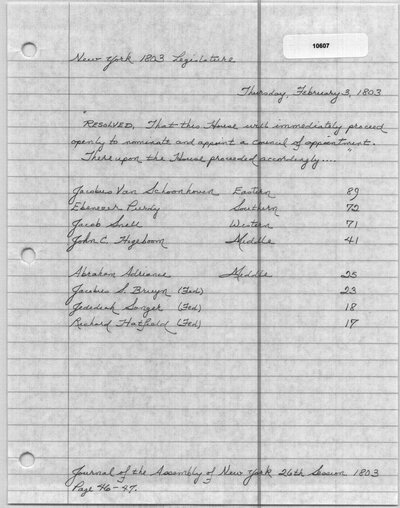 10607
New York 1803 Legislature
Thursday, February 3, 1803
"RESOLVED, That this House will immediately proceed
openly to nominate and appoint a Council of appointment.
Thereupon the House proceeded accordingly...."
Jacobus Van Schoonhoven Eastern 89
Ebenezer Purdy Southern 72
Jacob Snell Western 71
John C. Hogeboom Middle 41
Abraham Adriance Middle 25
Jacobus S. Bruyn (Fed) 23
Jedediah Sanger (Fed) 18
Richard Hatfield (Fed) 17
Journal of the Assembly of New York 26th Session 1803
Page 46-47.